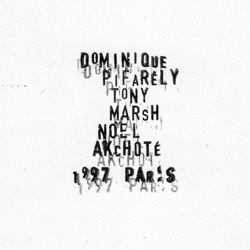 DOMINIQUE
PIFARELY
TONY
MARSH
NOËL
AKCHOTÉ
1997 PARIS